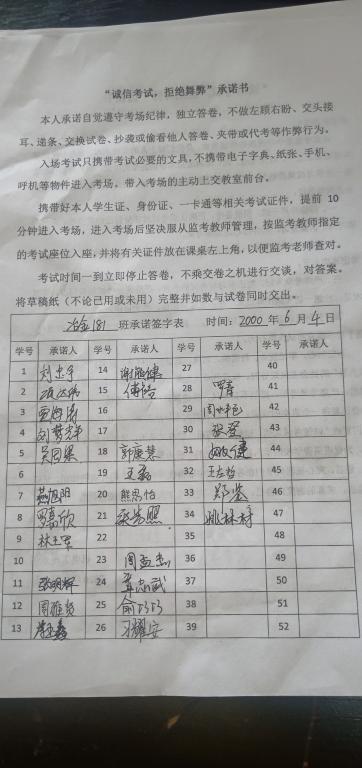 “诚信考试，拒绝舞弊”承诺书
本人承诺自觉遵守考场纪律，独立答卷，不做左顾右盼、交头接
耳、递条、交换试卷、抄袭或偷看他人答卷、夹带或代考等作弊行为。
入场考试只携带考试必要的文具，不携带电子字典、纸张、手机、
呼机等物件进入考场，带入考场的主动上交教室前台。
携带好本人学生证、身份证、一卡通等相关考试证件，提前 10
分钟进入考场，进入考场后坚决服从监考教师管理，按监考教师指定
的考试座位入座，并将有关证件放在课桌左上角，以便监考老师查对。
考试时间一到立即停止答卷，不乘交卷之机进行交谈，对答案。
将草稿纸（不论已用或未用）完整并如数与试卷同时交出。
冶金181 班承诺签字表 时间：2000 年 6 月 4 日
学号 承诺人 学号 承诺人 学号 承诺人 学号 承诺人
1 14 27 40
2 15 28 41
3 16 29 42
4 刘梦洋 17 30 43
5 18 郭康慧 31 44
6 19 王磊 32 王左哲 45
7 20 熊思怡 33 郑鉴 46
8 21 34 姚林材 47
9 林玉军 22 35 48
10 23 周孟杰 36 49
11 张明辉 24 37 50
12 周雅贤 25 俞巧巧 38 51
13 26 习耀安 39 52